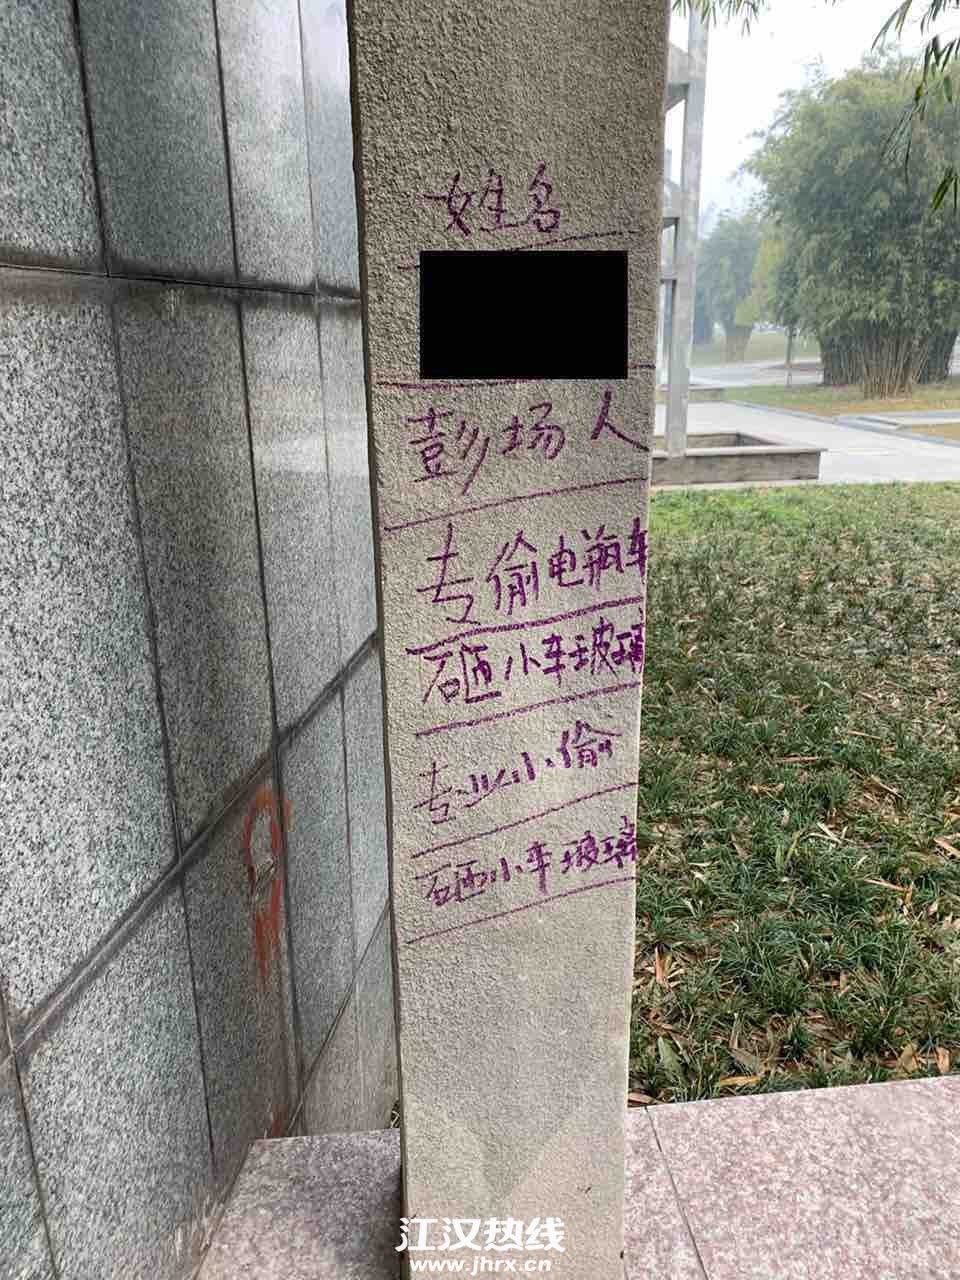 姓名
彭场人
专偷电瓶车
砸小车玻璃
专业小偷
砸小车玻璃
江汉热线
www.jhrx.cn